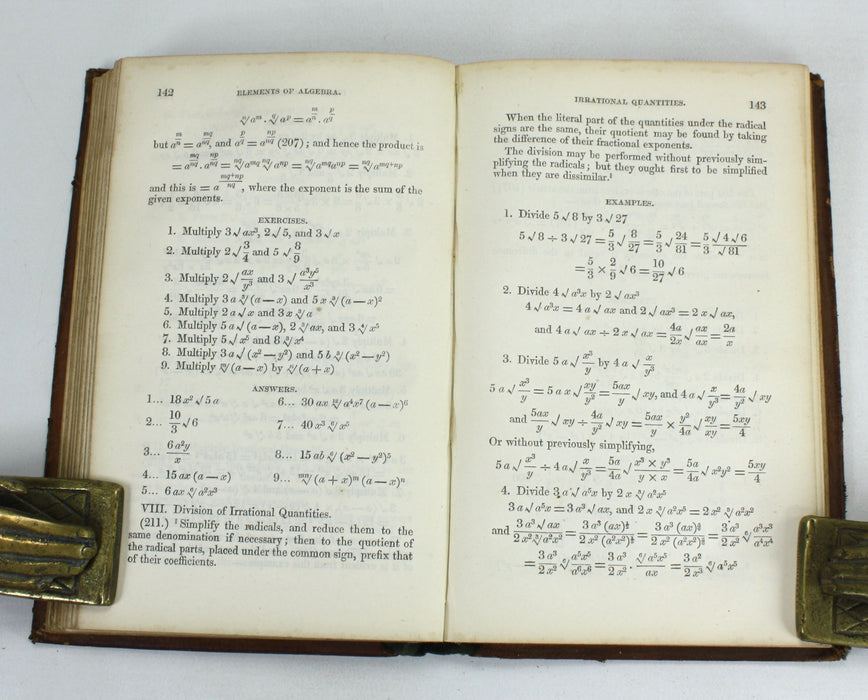 142 ELEMENTS OF ALGEBRA.
ⁿ√aᵐ . ᑫ√aᵖ = a^(m/n) . a^(p/q)
but a^(m/n) = a^(mq/nq), and a^(p/q) = a^(np/nq) (207) ; and hence the product is
= a^(mq/nq) . a^(np/nq) = ⁿᑫ√a^mq ⁿᑫ√a^np = ⁿᑫ√a^mq a^np = ⁿᑫ√a^(mq+np)
and this is = a^((mq+np)/nq), where the exponent is the sum of the
given exponents.
EXERCISES.
1. Multiply 3√ax³, 2√5, and 3√x
2. Multiply 2√(3/4) and 5√(8/9)
3. Multiply 2√(ax/y³) and 3√(a³y⁵/x³)
4. Multiply 3a ∛(a—x) and 5x ∛(a—x)²
5. Multiply 2a√x and 3x ∛a
6. Multiply 5a√(a—x), 2 ∛ax, and 3 √x⁵
7. Multiply 5√x⁵ and 8 ∛x⁴
8. Multiply 3a√(x²—y²) and 5b ∛(x²—y²)
9. Multiply ᵐ√(a—x) by ⁿ√(a+x)
ANSWERS.
1... 18x²√5a
2... 10/3 √6
3... 6a²y/x
4... 15ax(a—x)
5... 6ax ⁶√a²x³
7... 40x³ ⁶√x⁵
8... 15ab ⁶√(x²—y²)⁵
9... ᵐⁿ√(a+x)ᵐ(a—x)ⁿ
VIII. Division of Irrational Quantities.
(211.) ¹ Simplify the radicals, and reduce them to the
same denomination if necessary; then to the quotient of
the radical parts, placed under the common sign, prefix that
of their coefficients.
IRRATIONAL QUANTITIES. 143
When the literal part of the quantities under the radical
signs are the same, their quotient may be found by taking
the difference of their fractional exponents.
The division may be performed without previously sim-
plifying the radicals; but they ought first to be simplified
when they are dissimilar.¹
EXAMPLES.
1. Divide 5√8 by 3√27
5√8 ÷ 3√27 = 5/3 √(8/27) = 5/3 √(24/81) = 5/3 √4√6/√81
= 5/3 × 2/9 √6 = 10/27 √6
2. Divide 4√a³x by 2√ax³
4√a³x = 4a√ax and 2√ax³ = 2x√ax,
and 4a√ax ÷ 2x√ax = 4a/2x √(ax/ax) = 2a/x
3. Divide 5a√(x³/y) by 4a√(x/y³)
5a√(x³/y) = 5ax√(xy/y²) = 5ax/y √xy, and 4a√(x/y³) = 4a/y² √xy
and 5ax/y √xy ÷ 4a/y² √xy = 5ax/y × y²/4a √(xy/xy) = 5xy/4
Or without previously simplifying,
5a√(x³/y) ÷ 4a√(x/y³) = 5a/4a √(x³ × y³/y × x) = 5a/4a √x²y² = 5xy/4
4. Divide 3a√a⁵x by 2x ∛a²x⁵
3a√a⁵x = 3a³√ax, and 2x ∛a²x⁵ = 2x² ∛a²x²
and 3a³√ax/2x²∛a²x² = 3a³(ax)^(1/2)/2x²(a²x²)^(1/3) = 3a³(ax)^(3/6)/2x²(a²x²)^(2/6) = 3a³/2x² ⁶√(a³x³/a⁴x⁴)
= 3a³/2x² ⁶√(a⁵x⁵/a⁶x⁶) = 3a³/2x² . ⁶√a⁵x⁵/ax = 3a²/2x³ ⁶√a⁵x⁵